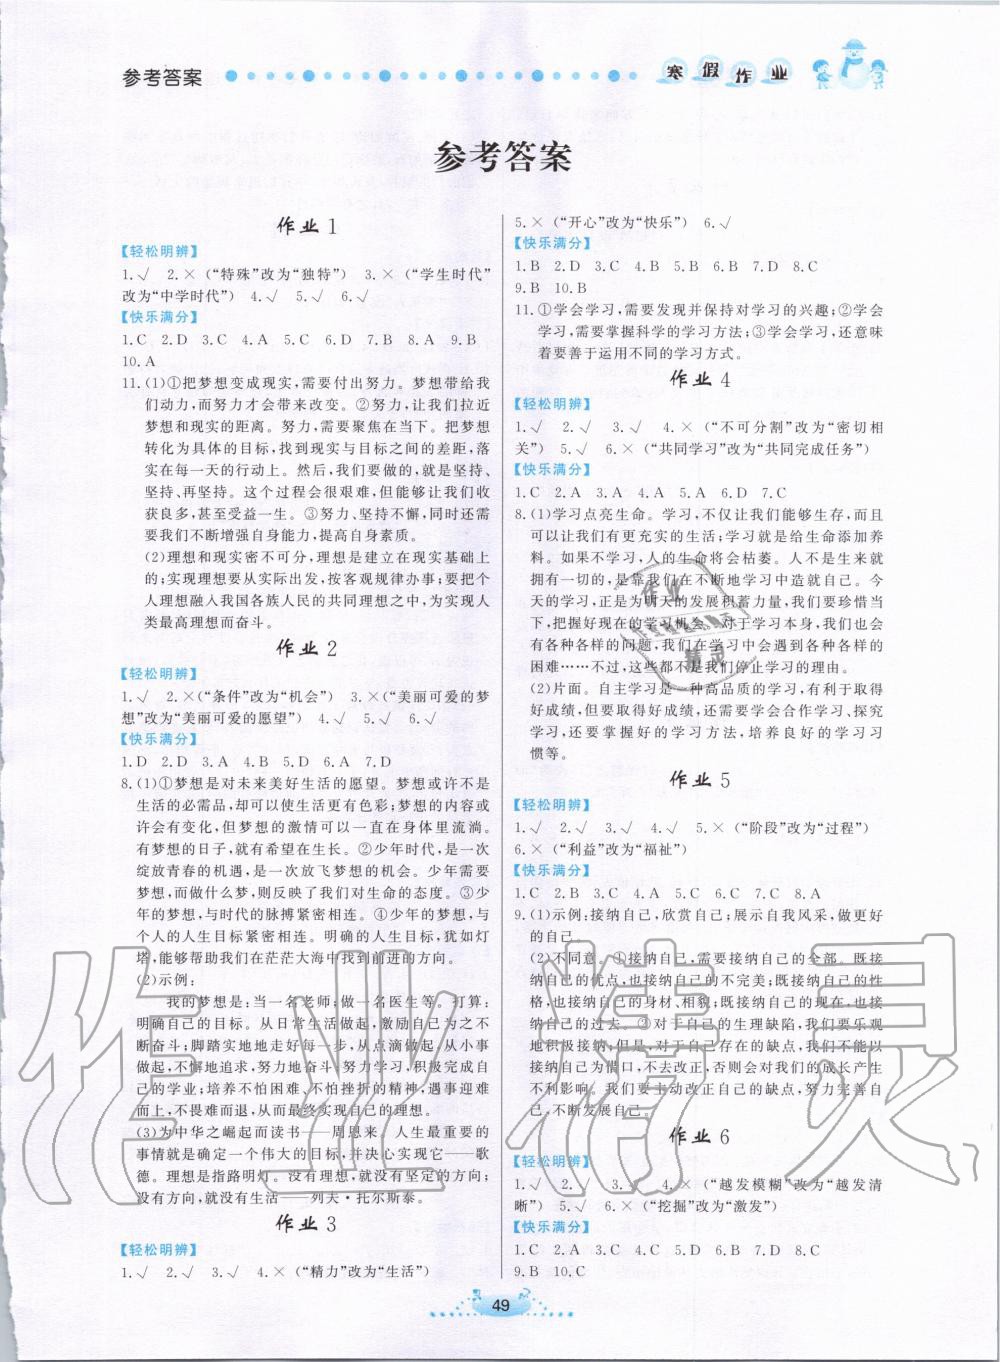 参考答案
寒假作业
参考答案
作业1
【轻松明辨】
1.√ 2.×(“特殊”改为“独特”) 3.×(“学生时代”
改为“中学时代”) 4.√ 5.√ 6.√
【快乐满分】
1.C 2.D 3.C 4.A 5.C 6.D 7.B 8.A 9.B
10.A
11.(1)①把梦想变成现实,需要付出努力。梦想带给我
们动力,而努力才会带来改变。②努力,让我们拉近
梦想和现实的距离。努力,需要聚焦在当下。把梦想
转化为具体的目标,找到现实与目标之间的差距,落
实在每一天的行动上。然后,我们要做的,就是坚持、
坚持、再坚持。这个过程会很艰难,但能够让我们收
获良多,甚至受益一生。③努力、坚持不懈,同时还需
要我们不断增强自身能力,提高自我素质。
(2)理想和现实密不可分,理想是建立在现实基础上
的;实现理想要从实际出发,按客观规律办事;要把个
人理想融入我国各族人民的共同理想之中,为实现人
类最高理想而奋斗。
作业2
【轻松明辨】
1.√ 2.×(“条件”改为“机会”) 3.×(“美丽可爱的梦
想”改为“美丽可爱的愿望”) 4.√ 5.√ 6.√
【快乐满分】
1.D 2.D 3.A 4.B 5.D 6.A 7.D
8.(1)①梦想是对未来美好生活的愿望。梦想或许不是
生活的必需品,却可以使生活更有色彩;梦想的内容或
许会有变化,但梦想的激情可以一直在身体里流淌。
有梦想的日子,就有希望在生长。②少年时代,是一次
绽放青春的机遇,是一次放飞梦想的机会。少年需要
梦想,而做什么梦,则反映了我们对生命的态度。③少
年的梦想,与时代的脉搏紧密相连。④少年的梦想,与
个人的人生目标紧密相连。明确的人生目标,犹如灯
塔,能够帮助我们在茫茫大海中找到前进的方向。
(2)示例:
我的梦想是:当一名老师;做一名医生等。打算:
明确自己的目标。从日常生活做起,激励自己为之不
断奋斗;脚踏实地地走好每一步,从点滴做起,从小事
做起,不懈地追求,努力地奋斗。努力学习,积极完成自
己的学业;培养不怕困难、不怕挫折的精神,遇事迎难
而上,不畏艰难,从而最终实现自己的理想。
(3)为中华之崛起而读书——周恩来。人生最重要的
事情就是确定一个伟大的目标,并决心实现它——歌
德。理想是指路明灯。没有理想,就没有坚定的方向;
没有方向,就没有生活——列夫·托尔斯泰。
作业3
【轻松明辨】
1.√ 2.√ 3.√ 4.×(“精力”改为“生活”)
5.×(“开心”改为“快乐”) 6.√
【快乐满分】
1.B 2.D 3.C 4.C 5.B 6.D 7.D 8.C
9.B 10.B
11.①学会学习,需要发现并保持对学习的兴趣;②学会
学习,需要掌握科学的学习方法;③学会学习,还意味
着要善于运用不同的学习方式。
作业4
【轻松明辨】
1.√ 2.√ 3.√ 4.×(“不可分割”改为“密切相
关”) 5.√ 6.×(“共同学习”改为“共同完成任务”)
【快乐满分】
1.C 2.A 3.A 4.A 5.B 6.D 7.C
8.(1)学习点亮生命。学习,不仅让我们能够生存,而且
可以让我们有更充实的生活;学习就是给生命添加养
料。如果不学习,人的生命将会枯萎。人不是生来就
拥有一切的,是靠我们在不断地学习中造就自己。今
天的学习,正是为明天的发展积蓄力量,我们要珍惜当
下,把握好现在的学习机会。对于学习本身,我们也会
有各种各样的问题,我们在学习中会遇到各种各样的
困难……不过,这些都不是我们停止学习的理由。
(2)片面。自主学习是一种高品质的学习,有利于取得
好成绩,但要取得好成绩,还需要学会合作学习、探究
学习,还要掌握好的学习方法,培养良好的学习习
惯等。
作业5
【轻松明辨】
1.√ 2.√ 3.√ 4.√ 5.×(“阶段”改为“过程”)
6.×(“利益”改为“福祉”)
【快乐满分】
1.C 2.B 3.C 4.C 5.C 6.C 7.C 8.A
9.(1)示例:接纳自己,欣赏自己;展示自我风采,做更好
的自己。
(2)不同意。①接纳自己,需要接纳自己的全部。既接
纳自己的优点,也接纳自己的不完美;既接纳自己的性
格,也接纳自己的身材、相貌;既接纳自己的现在,也接
纳自己的过去。③对于自己的生理缺陷,我们要乐观
地积极接纳;但是,对于自己存在的缺点,我们不能以
接纳自己为借口,不去改正,否则会对我们的成长产生
不利影响。我们要主动改正自己的缺点,努力完善自
己,不断发展自己。
作业6
【轻松明辨】
1.√ 2.√ 3.√ 4.×(“越发模糊”改为“越发清
晰”) 5.√ 6.×(“挖掘”改为“激发”)
【快乐满分】
1.C 2.A 3.C 4.C 5.D 6.B 7.C 8.D
9.B 10.C
49
作业精灵